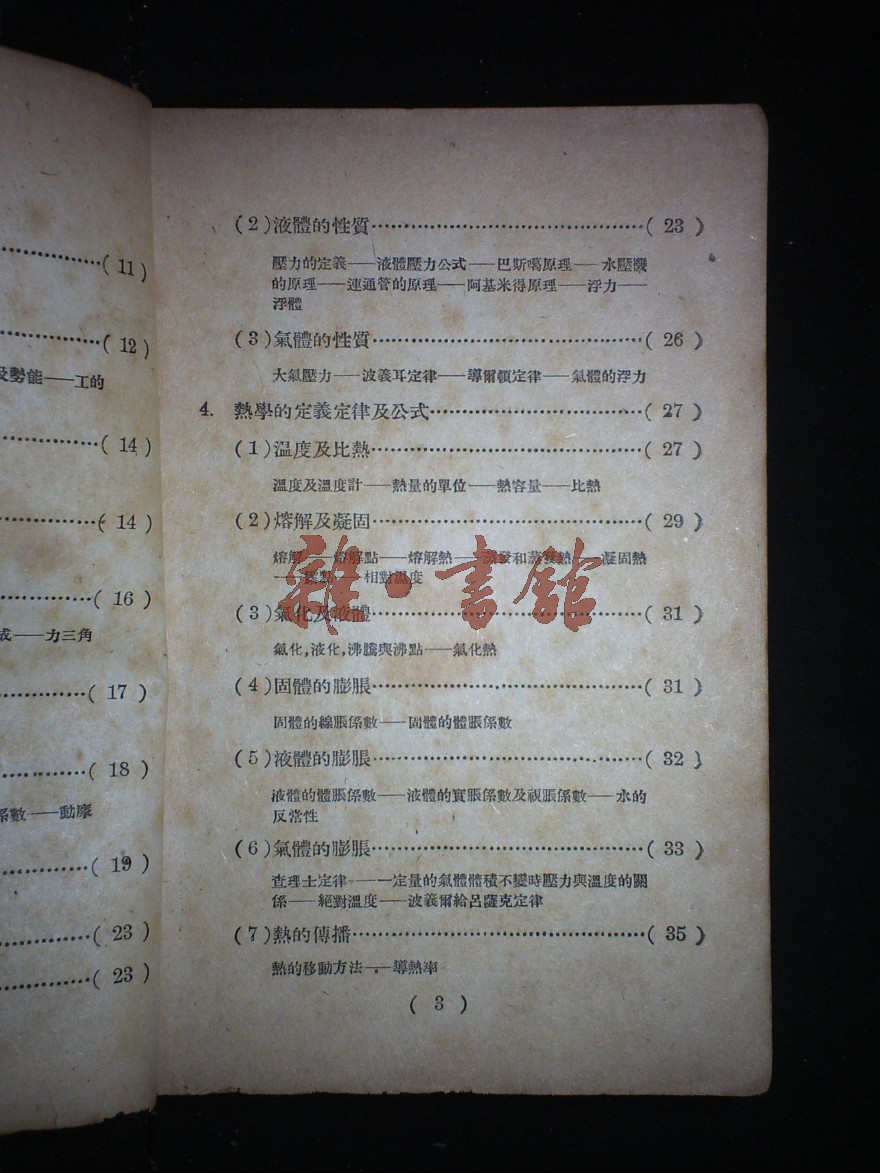 (11)
(12)
及勢能——工的
(14)
(14)
(16)
成——力三角
(17)
(18)
係數——動摩
(19)
(23)
(23)
(2)液體的性質……(23)
壓力的定義——液體壓力公式——巴斯噶原理——水壓機
的原理——連通管的原理——阿基米得原理——浮力——
浮體
(3)氣體的性質……(26)
大氣壓力——波義耳定律——導爾頓定律——氣體的浮力
4. 熱學的定義定律及公式……(27)
(1)溫度及比熱……(27)
溫度及溫度計——熱量的單位——熱容量——比熱
(2)熔解及凝固……(29)
熔解——熔解點——熔解熱——蒸發和蒸發熱——凝固熱
——相對溫度
(3)氣化及液體……(31)
氣化,液化,沸騰與沸點——氣化熱
(4)固體的膨脹……(31)
固體的線脹係數——固體的體脹係數
(5)液體的膨脹……(32)
液體的體脹係數——液體的實脹係數及視脹係數——水的
反常性
(6)氣體的膨脹……(33)
查理士定律——一定量的氣體體積不變時壓力與溫度的關
係——絕對溫度——波義爾給呂薩克定律
(7)熱的傳播……(35)
熱的移動方法——導熱率
(3)
雜·書館